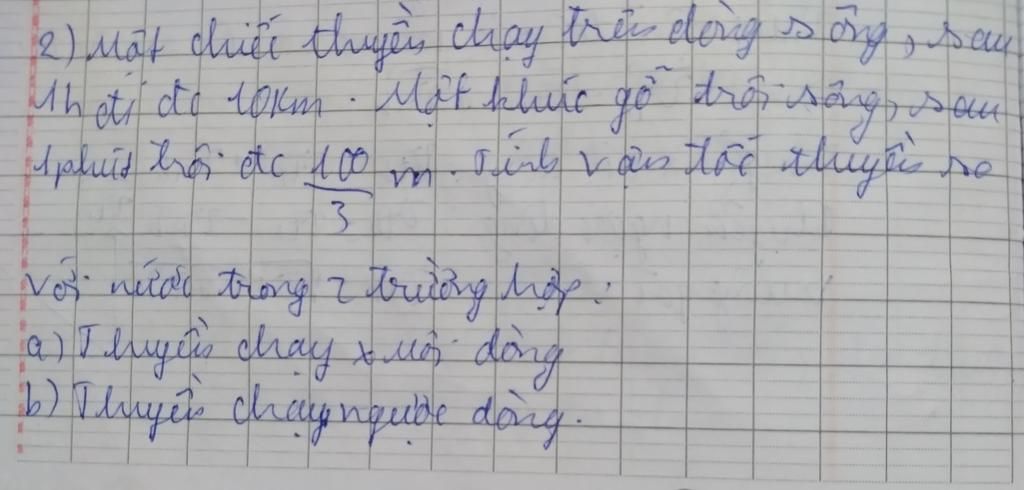 2) Một chiếc thuyền chạy trên dòng sông, sau
1h đi đc 10km. Một khúc gỗ trôi sông, sau
1 phút trôi đc 100/3 m. Tính vận tốc thuyền so
với nước trong 2 trường hợp:
a) Thuyền chạy xuôi dòng
b) Thuyền chạy ngược dòng.